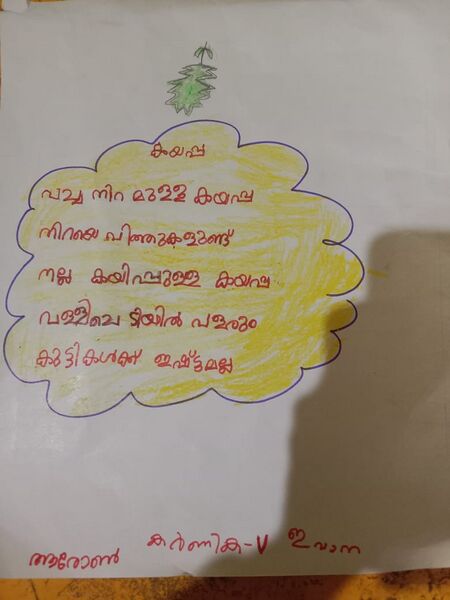 കയപ്പ
പച്ച നിറ മുള്ള കയപ്പ
നിറയെ വിത്തുകളുണ്ട്
നല്ല കയിപ്പുള്ള കയപ്പ
വള്ളിചെ ടിയിൽ വളരും
കുട്ടികൾക്ക് ഇഷ്ട്ടമല്ല
ആരോൺ കർണിക-V ഇവാന